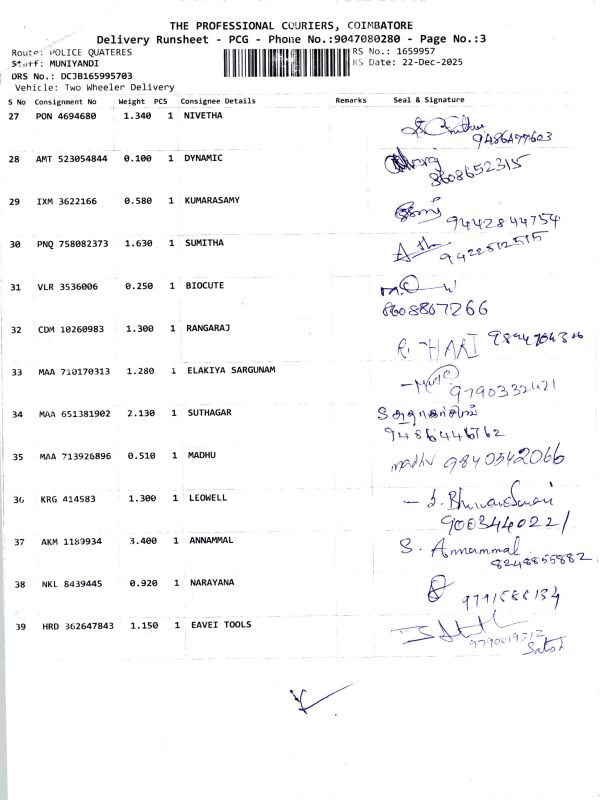 THE PROFESSIONAL COURIERS, COIMBATORE
Delivery Runsheet - PCG - Phone No.:9047080280 - Page No.:3
Route: POLICE QUATERES
RS No.: 1659957
Staff: MUNIYANDI
RS Date: 22-Dec-2025
DRS No.: DCJB165995703
Vehicle: Two Wheeler Delivery
S No Consignment No Weight PCS Consignee Details Remarks Seal & Signature
27 PON 4694680 1.340 1 NIVETHA
28 AMT 523054844 0.100 1 DYNAMIC
8608652315
29 IXM 3622166 0.580 1 KUMARASAMY
9442844754
30 PNQ 758082373 1.630 1 SUMITHA
31 VLR 3536006 0.250 1 BIOCUTE
8608867266
32 CDM 10260983 1.300 1 RANGARAJ
R. HARI
33 MAA 710170313 1.280 1 ELAKIYA SARGUNAM
9790332421
34 MAA 651381902 2.130 1 SUTHAGAR
9486446762
35 MAA 713926896 0.510 1 MADHU
madhu 9840542066
36 KRG 414583 1.300 1 LEOWELL
9003440221
37 AKM 1189934 3.400 1 ANNAMMAL
S. Annammal
8248855882
38 NKL 8439445 0.920 1 NARAYANA
39 HRD 362647843 1.150 1 EAVEI TOOLS